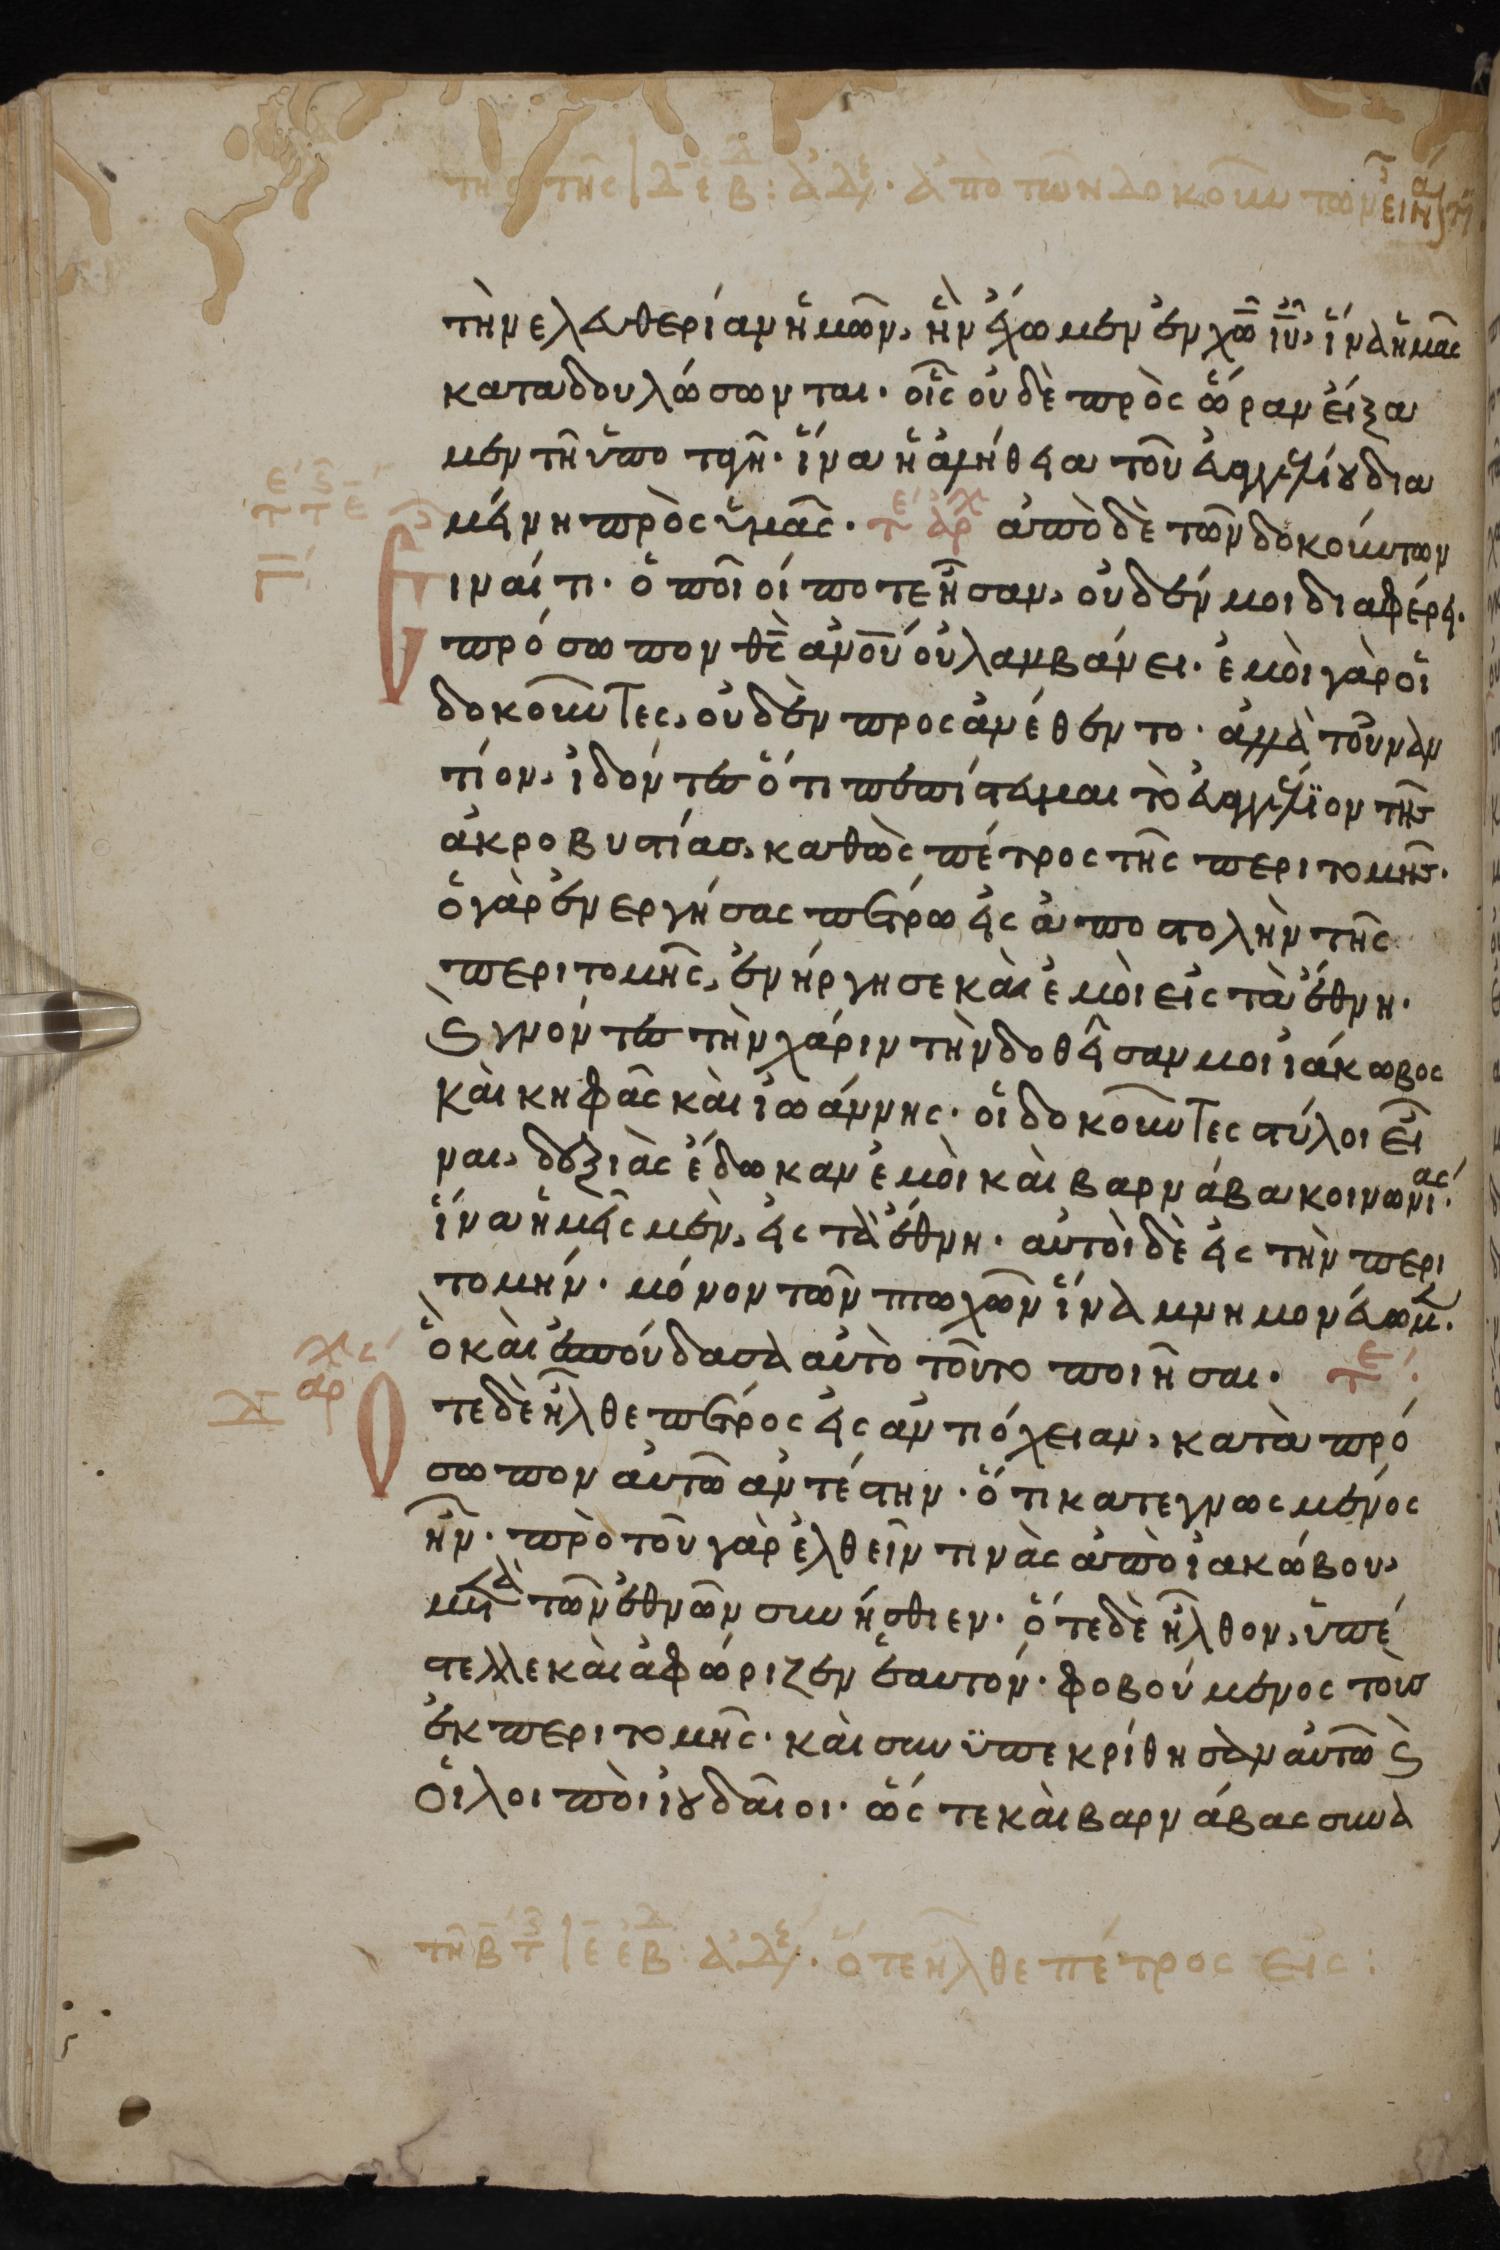 τὴν ἐλευθερίαν ἡμῶν, ἣν ἔχωμεν ἐν χῶ ἰῦ, ἵνα ἡμᾶς
καταδουλώσωνται· οἷς οὐδὲ πρὸς ὥραν εἴξα
μεν τῆ ὑποταγῆ· ἵνα ἡ ἀλήθεια τοῦ εὐαγγελίου δια
μείνη πρὸς ὑμᾶς· ἀπὸ δὲ τῶν δοκούντων
Εἶναί τι· ὁποῖοί ποτε ἦσαν, οὐδέν μοι διαφέρει·
πρόσωπον θς ἀνου οὐ λαμβάνει· ἐμοὶ γὰρ οἱ
δοκοῦντες, οὐδὲν προσανέθεντο· ἀλλὰ τοὐναν
τίον, ἰδόντες ὅτι πεπίστευμαι τὸ εὐαγγέλιον τῆς
ἀκροβυστίας, καθὼς πέτρος τῆς περιτομῆς·
ὁ γὰρ ἐνεργήσας πέτρω εἰς ἀποστολὴν τῆς
περιτομῆς, ἐνήργησε καὶ ἐμοὶ εἰς τὰ ἔθνη·
καὶ γνόντες τὴν χάριν τὴν δοθεῖσαν μοι ἰάκωβος
καὶ κηφᾶς καὶ ἰωάννης· οἱ δοκοῦντες στύλοι εἶ
ναι, δεξιὰς ἔδωκαν ἐμοὶ καὶ βαρνάβα κοινωνίας·
ἵνα ἡμεῖς μὲν, εἰς τὰ ἔθνη· αὐτοὶ δὲ εἰς τὴν περι
τομήν· μόνον τῶν πτωχῶν ἵνα μνημονεύωμεν·
ὃ καὶ ἐσπούδασα αὐτὸ τοῦτο ποιῆσαι·
Ὅτε δὲ ἦλθε πέτρος εἰς ἀντιόχειαν, κατὰ πρό
σωπον αὐτῶ ἀντέστην· ὅτι κατεγνωσμένος
ἦν· πρὸ τοῦ γὰρ ἐλθεῖν τινὰς ἀπὸ ἰακώβου,
μετὰ τῶν ἐθνῶν συνήσθιεν· ὅτε δὲ ἦλθον, ὑπέ
στελλε καὶ ἀφώριζεν ἑαυτόν· φοβούμενος τοὺς
ἐκ περιτομῆς· καὶ συνϋπεκρίθησαν αὐτῶ καὶ
οἱ λοιποὶ ἰουδαῖοι· ὥστε καὶ βαρνάβας συνα
ὅτε ἦλθε πέτρος εἰς: